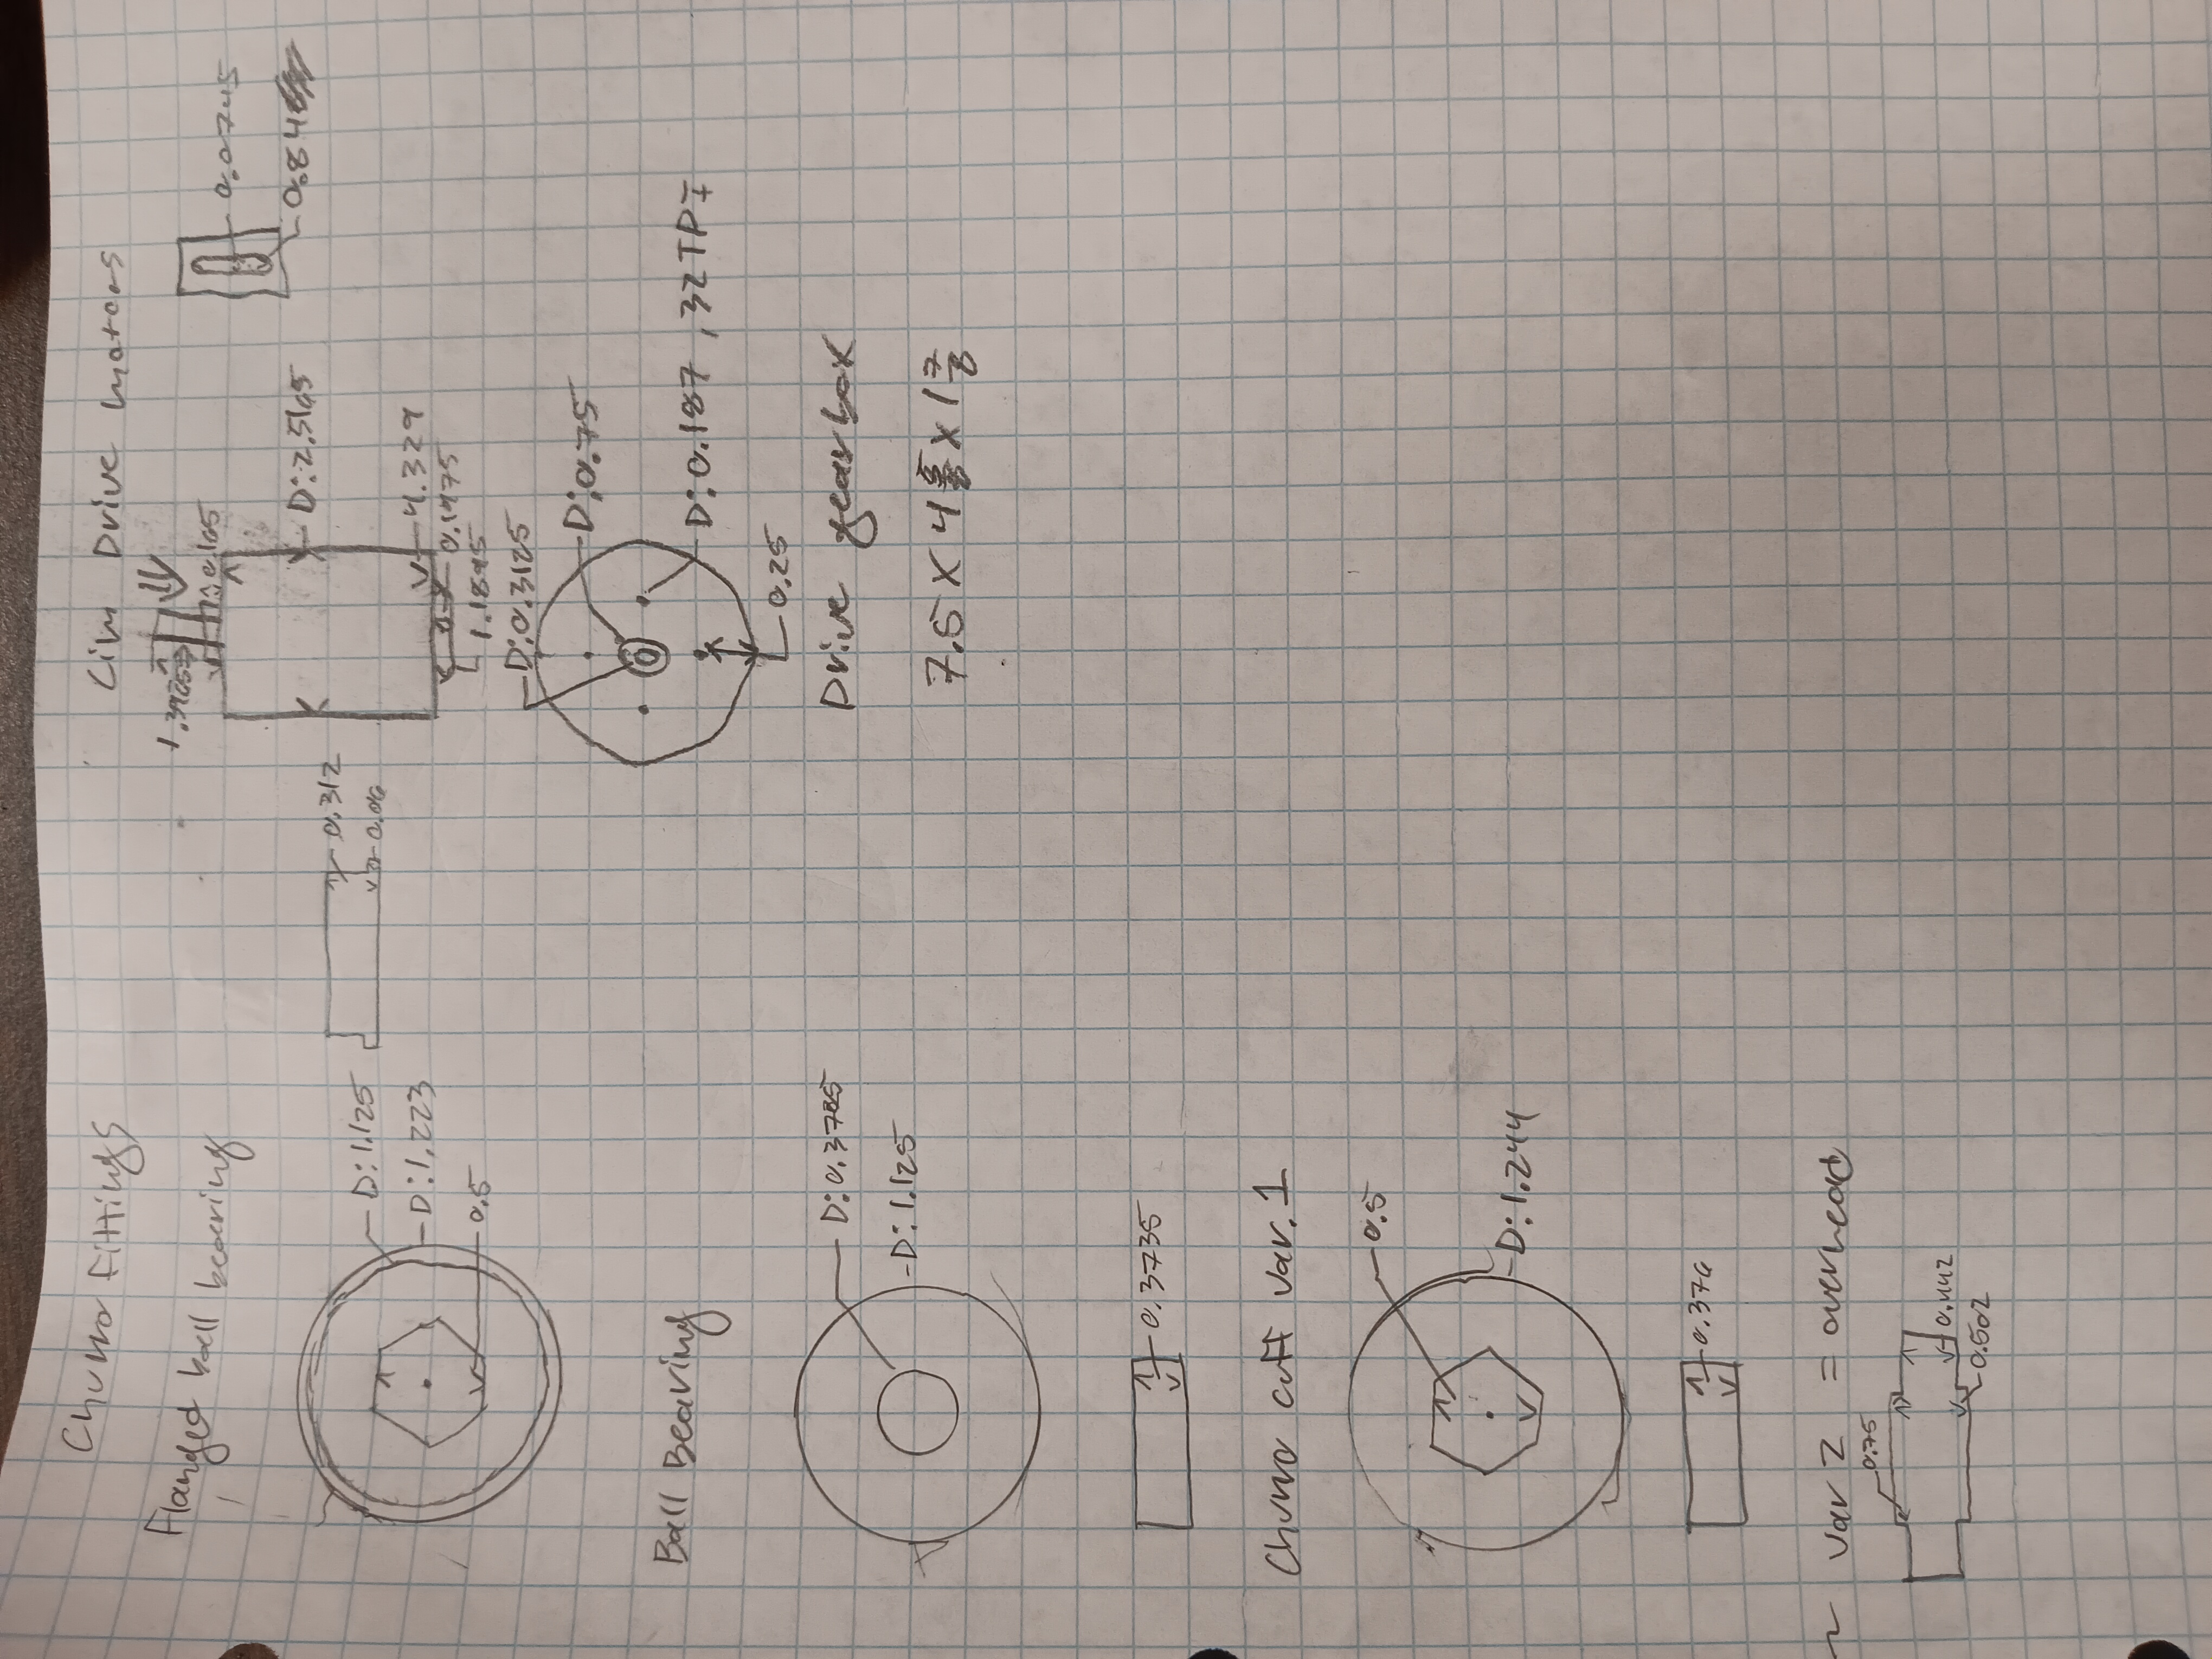 Churro Fittings
Flanged ball bearing
D: 1.125
D: 1.223
0.5
0.312
0.06
Ball Bearing
D: 1.125
0.3735
Churro cuff var. 1
0.5
D: 1.244
0.376
~ var 2 = overhead
0.75
0.442
0.502
Cim Drive motors
0.165
D: 2.5165
4.329
0.1975
1.1895
0.0745
0.84
D: 0.3125
D: 0.75
D: 0.187, 32 TPI
0.25
Drive gearbox
7.5 X 4 5/8 X 1 7/8